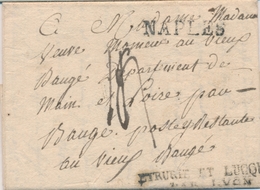 A Madame Madame
NAPLES
Veuve Moneur au Vieux
Baugé Département de
Main et Loire par
18
Baugé poste Restante
au Vieux Baugé
ETRURIE ET LUCQU